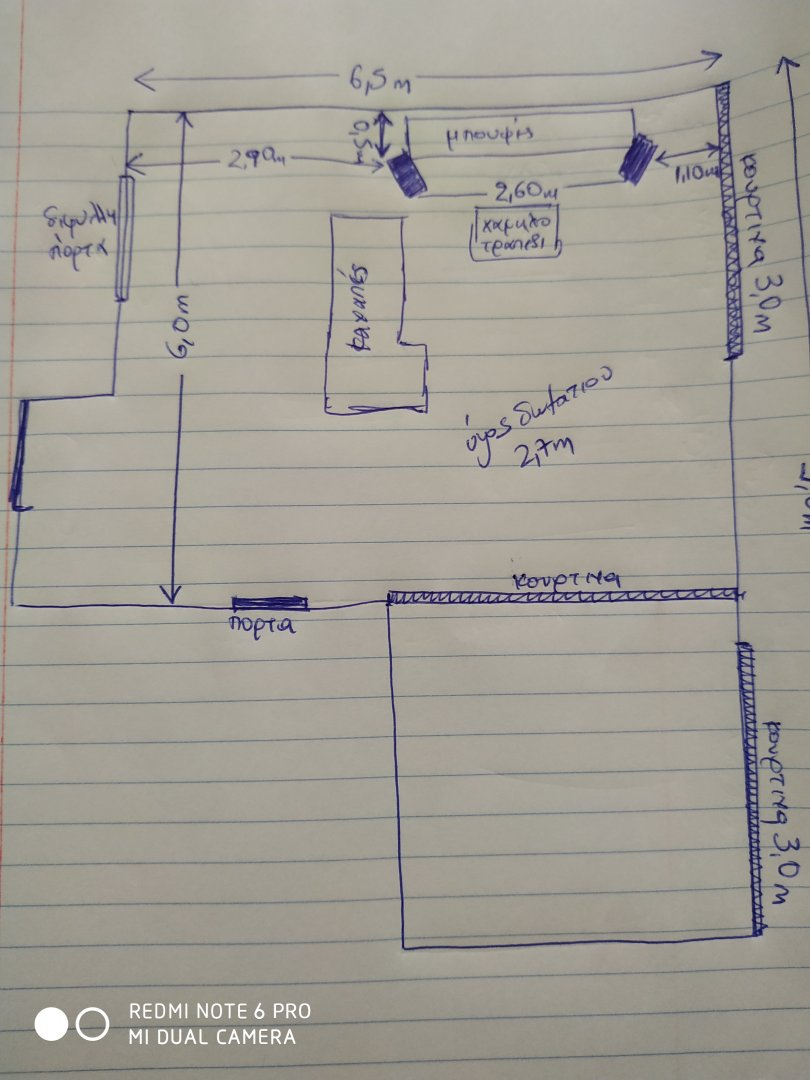 6,5 m
0,5m
μπουφές
2,90m
1,10m
2,60m
χαμηλο
τραπεζι
δίφυλλη
πόρτα
κουρτινα 3,0 m
6,0 m
καναπές
ύψος δωματιου
2,7m
κουρτινα
πορτα
κουρτινα 3,0 m
REDMI NOTE 6 PRO
MI DUAL CAMERA